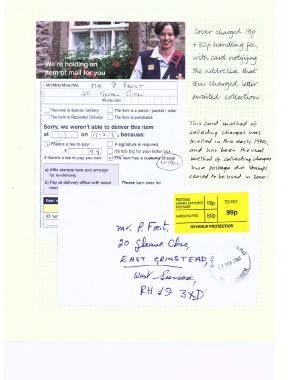 We're holding an
item of mail for you
Mr/Mrs/Miss/Ms MR. P FROST
20
Postcode
The item is Special Delivery
The item is a parcel / packet / letter
The item is Recorded Delivery
The item is perishable
Sorry, we weren't able to deliver this item
at on because:
There's a fee to pay
A signature is required
£ 99
It's too big for your letter box
If there's a fee to pay see
a) After stamps here and arrange
for re-delivery
b) Pay at delivery office with most
Please turn over for
Cover charged 19p
+ 80p handling fee,
with card notifying
the addressee that
this charged letter
awaited collection
This card method of
collecting charges was
trialled in the early 1990,
and has been the usual
method of collecting charges
since postage due stamps
ceased to be used in 2000.
POSTAGE
UNPAID/DEFICIENT
POSTAGE 19p
HANDLING FEE 80p
TO PAY
99p
REVENUE PROTECTION
Mr. P. Frost,
20 Close,
EAST GRINSTEAD,
West Sussex,
RH19 3XD